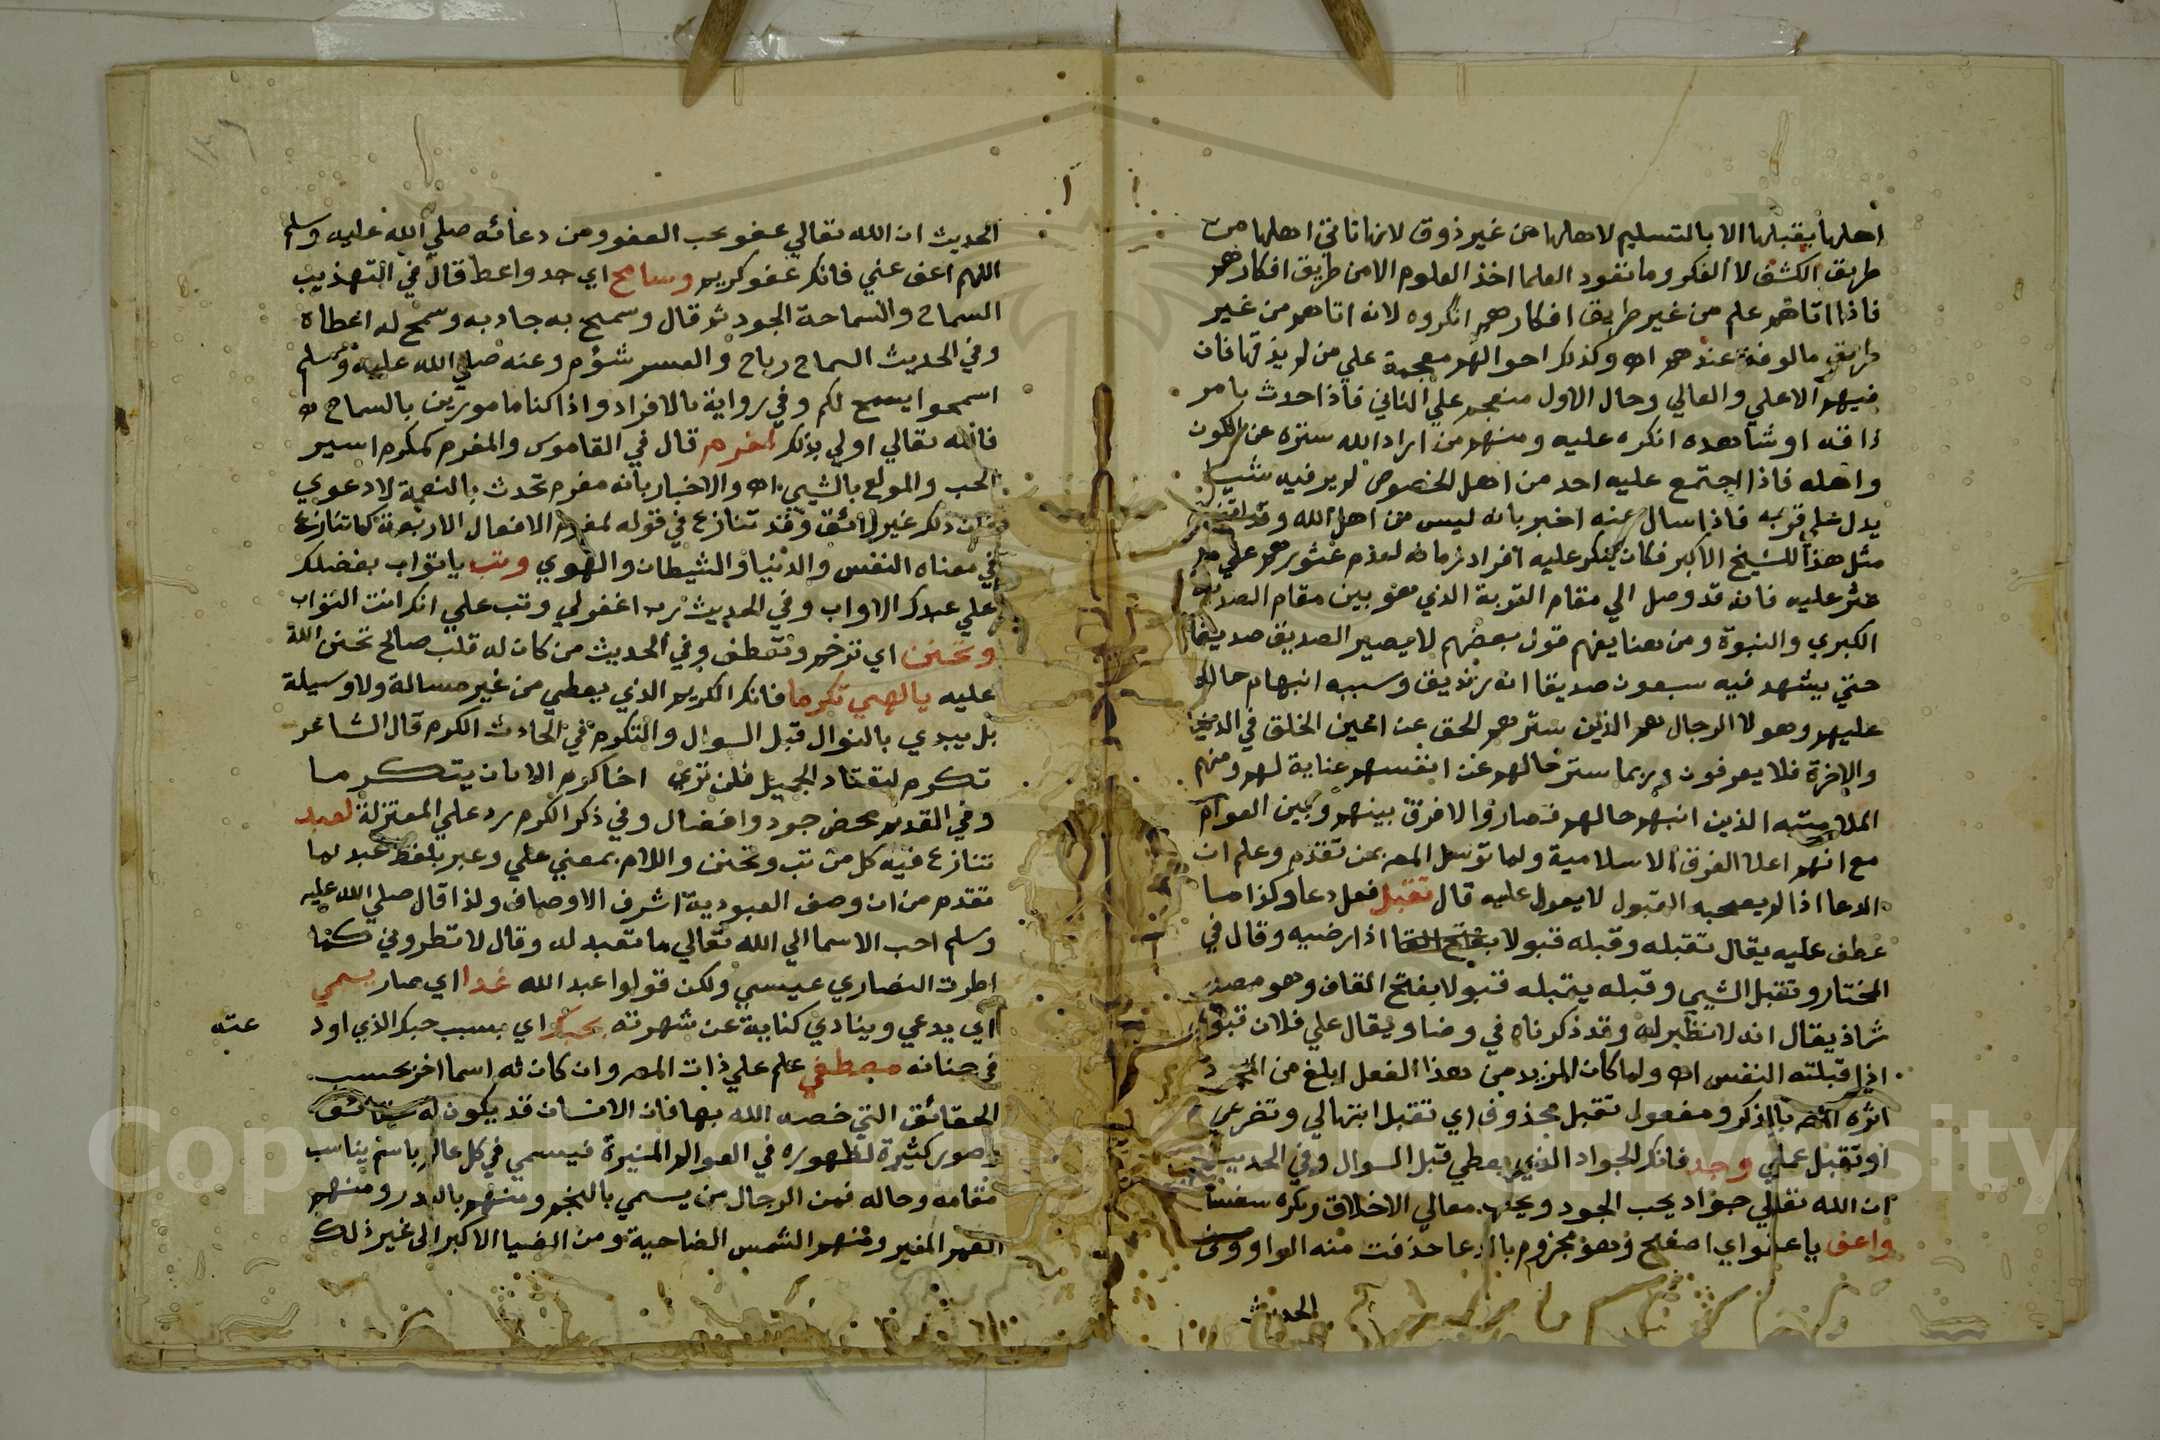 اهلها يقبلها الا بالتسليم لاهلها من غير ذوق لانها تاتي اهلها من
طريق الكشف لا الفكر وما تعود العلما اخذ العلوم الا من طريق افكارهم
فاذا اتاهم علم من غير طريق افكارهم انكروه لانه اتاهم من غير
طريق مالوفة عندهم اه وكذلك احوالهم معجمة علي من لم يذقها فان
فيهم الاعلي والعالي وحال الاول منعجم علي الثاني فاذا حدث بامر
ذاقه او شاهده انكره عليه ومنهم من اراد الله ستره عن الكون
واهله فاذا اجتمع عليه احد من اهل الخصوص لم ير فيه شيا
يدل علي قربه فاذا سال عنه اخبر بانه ليس من اهل الله وقد
مثل هذا للشيخ الاكبر فكان ينكر عليه افراد زمانه لعدم عثورهم علي ما
عثر عليه فانه قد وصل الي مقام القربة الذي هو بين مقام
الكبري والنبوة ومن هنا يفهم قول بعضهم لا يصير الصديق صديقا
حتي يشهد فيه سبعون صديقا انه زنديق وسببه انبهام حاله
عليهم وهولا الرجال هم الذين سترهم الحق عن اعين الخلق في الدنيا
والاخرة فلا يعرفون وربما ستر حالهم عن انفسهم عناية لهم ومنهم
الذين انبهم حالهم فصاروا لا فرق بينهم وبين العوام
مع انهم اعلا الفرق الاسلامية ولما توسل المص بمن تقدم وعلم ان
الدعا اذا لم يصحبه القبول لا يعول عليه قال تقبل فعل دعا وكذا ما
عطف عليه يقال تقبله وقبله قبولا بفتح القا اذا رضيه وقال في
المختار وتقبل الشيي وقبله يتبله قبولا بفتح القاف وهو مصدر
شاذ يقال انه لا نظير له وقد ذكرناه في وضا ويقال علي فلان قبول
اذا قبلته النفس اه ولما كان المزيد من هذا الفعل ابلغ من
اثره المص بالذكر ومفعول تقبل محذوف اي تقبل ابتهالي وتضرعي
او تقبل عملي وجد فانك الجواد الذي يعطي قبل السوال وفي الحديث
ان الله تعالي جواد يحب الجود ويحب معالي الاخلاق ويكره
واعف يا عفو اي اصفح وهو مجزوم بالدعا حذفت منه الواو وفي
الحديث
الحديث ان الله تعالي عفو يحب العفو ومن دعائه صلي الله عليه وسلم
اللهم اعف عني فانك عفو كريم وسامح اي جد واعط قال في التهذيب
السماح والسماحة الجود ثم قال وسمح به جاد به وسمح له اعطاه
وفي الحديث السماح رباح والعسر شؤم وعنه صلي الله عليه وسلم
اسمحوا يسمح لكم وفي رواية بالافراد واذا كنا مامورين بالسماح
فالله تعالي اولي بذلك لمغرم قال في القاموس والمغرم كمكرم اسير
الحب والمولع بالشيي اه والاخبار بانه مغرم تحدث بالنعمة لا دعوي
ذلك غير لائق وقد تنازع في قوله لمغرم الافعال الاربعة كما تنازع
في معناه النفس والدنيا والشيطان والهوي وتب يا تواب بفضلك
علي عبدك الاواب وفي الحديث رب اغفر لي وتب علي انك انت التواب
وتحنن اي ترحم وتعطف وفي الحديث من كان له قلب صالح تحنن الله
عليه يا الهي تكرما فانك الكريم الذي يعطي من غير مسالة ولا وسيلة
بل يبدي بالنوال قبل السوال والتكرم في الحادث الكرم قال الشاعر
تكرم لتعتاد الجميل فلن تري اخا كرم الا بان يتكرما
وفي القديم محض جود وافضال وفي ذكر الكرم رد علي المعتزلة لعبد
تنازع فيه كل من تب وتحنن واللام بمعني علي وعبر بلفظ عبد لما
تقدم من ان وصف العبودية اشرف الاوصاف ولذا قال صلي الله عليه
وسلم احب الاسما الي الله تعالي ما تعبد له وقال لا تطروني كما
اطرت النصاري عيسي ولكن قولوا عبد الله غدا اي صار يسمي
اي يدعي وينادي كناية عن شهرته بحبك اي بسبب حبك الذي اود
عته
في جنانه مصطفي علم علي ذات المص وان كان له اسما اخر بحسب
الحقائق التي خصه الله بها فان الانسان قد يكون له
وصور كثيرة لظهوره في العوالم المنيرة فيسمي في كل عالم باسم يناسب
مقامه وحاله فمن الرجال من يسمي بالنجم ومنهم بالبدر ومنهم
القمر المنير ومنهم الشمس الضاحية ومن الضيا الاكبر الي غير ذلك